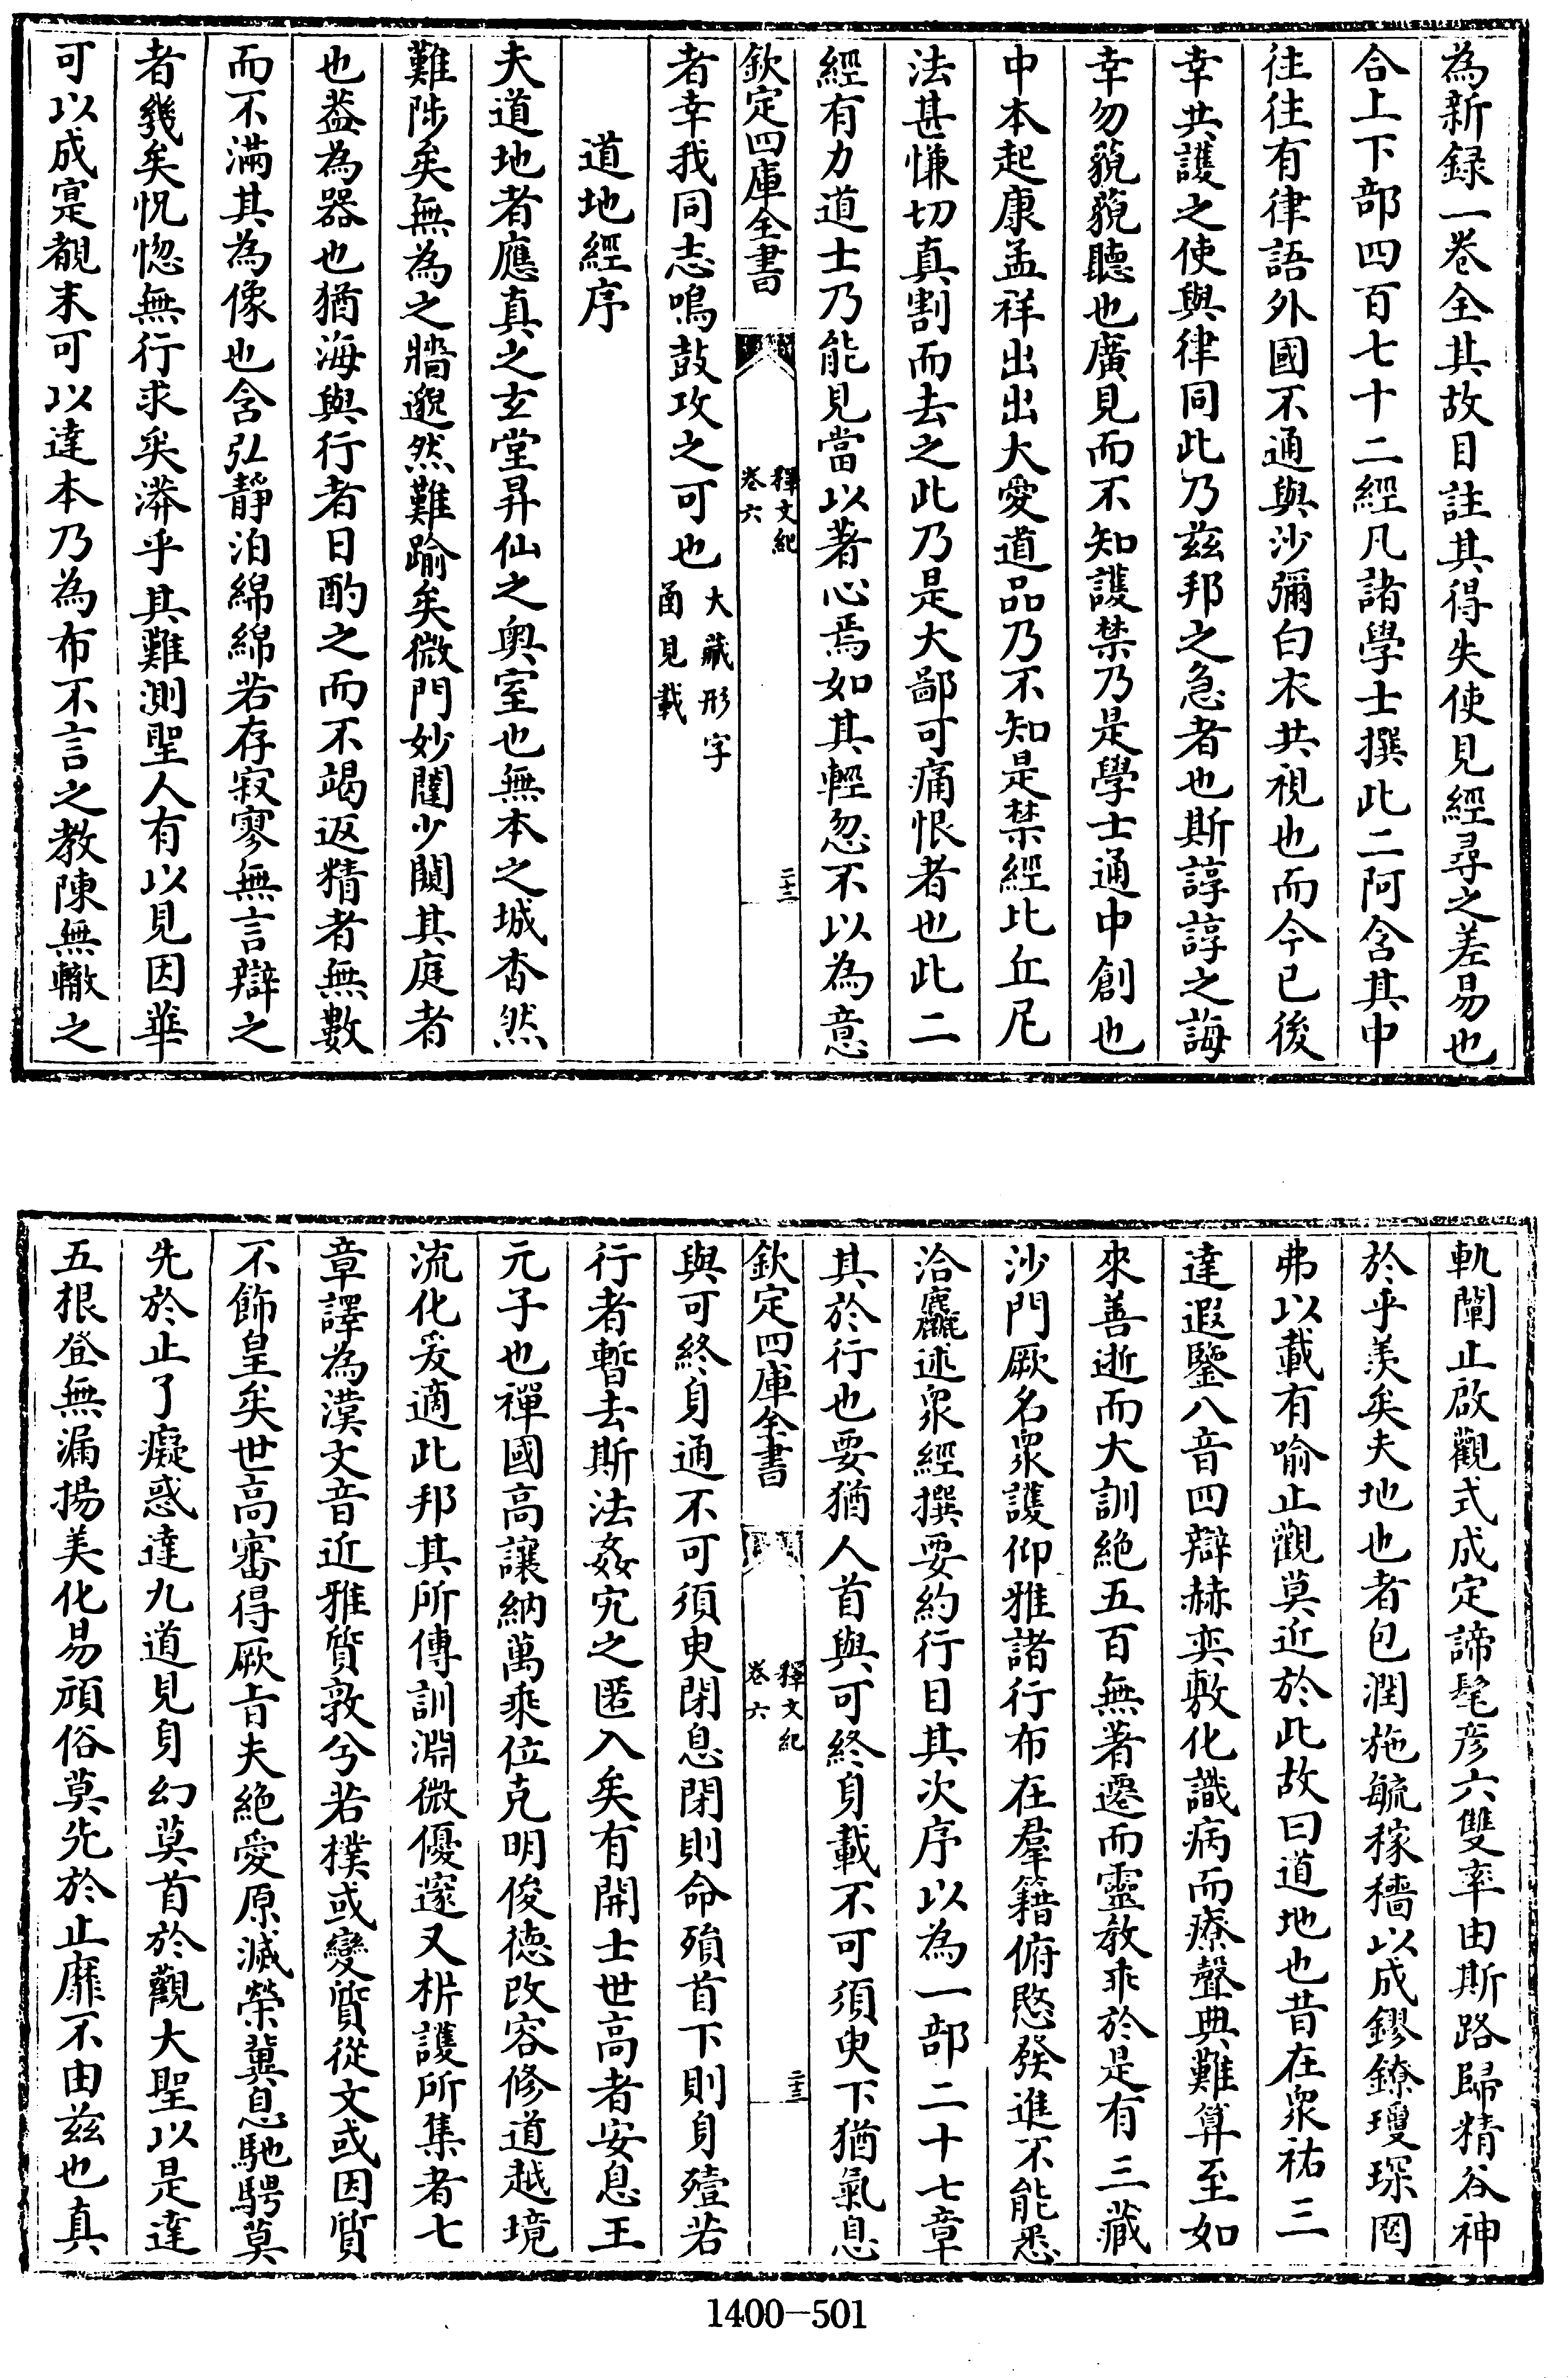 為新録一卷全其故目註其得失使見經尋之差易也
合上下部四百七十二經凡諸學士撰此二阿含其中
徃徃有律語外國不通與沙彌白衣共視也而今已後
幸共護之使與律同此乃兹邦之急者也斯諄諄之誨
幸勿藐藐聽也廣見而不知護禁乃是學士通中創也
中本起康孟祥出出大愛道品乃不知是禁經比丘尼
法甚慊切真割而去之此乃是大鄙可痛恨者也此二
經有力道士乃能見當以著心焉如其輕忽不以為意
欽定四庫全書
釋文紀
卷六
二十三
者幸我同志鳴鼓攻之可也
大藏形字
函見載
道地經序
夫道地者應真之玄堂昇仙之奥室也無本之城杳然
難陟矣無為之牆邈然難踰矣微門妙闥少闚其庭者
也葢為器也猶海與行者日酌之而不竭返精者無數
而不滿其為像也含弘靜泊綿綿若存寂寥無言辯之
者幾矣怳惚無行求矣漭乎其難測聖人有以見因華
可以成寔覩末可以達本乃為布不言之教陳無轍之
軌闡止啟觀式成定諦髦彦六雙率由斯路歸精谷神
於乎羨矣夫地也者包潤施毓稼穡以成鏐鐐瓊琛罔
弗以載有喻止觀莫近於此故曰道地也昔在衆祐三
達遐鑒八音四辯赫奕敷化識病而療聲典難算至如
來善逝而大訓絶五百無著遷而靈教乖於是有三藏
沙門厥名衆護仰雅諸行布在羣籍俯愍發進不能悉
洽麤述衆經撰要約行目其次序以為一部二十七章
其於行也要猶人首與可終身載不可須臾下猶氣息
欽定四庫全書
釋文紀
卷六
二十三
與可終身通不可須臾閉息閉則命殞首下則身殪若
行者暫去斯法姦宄之匿入矣有開士世高者安息王
元子也禪國高讓納萬乘位克明俊德改容修道越境
流化爰適此邦其所傳訓淵微優邃又析護所集者七
章譯為漢文音近雅質敦兮若樸或變質從文或因質
不飾皇矣世高審得厥旨夫絶愛原滅榮冀息馳騁莫
先於止了癡惑達九道見身幻莫首於觀大聖以是達
五根登無漏揚美化易頑俗莫先於止靡不由兹也真
1400-501